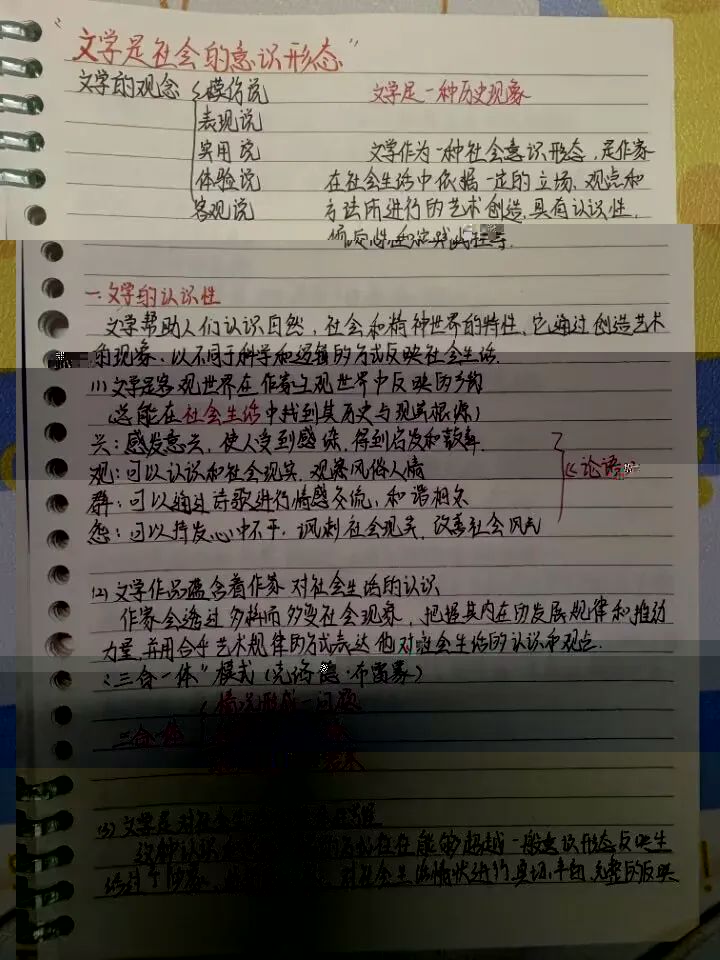 “文学是社会的意识形态”
文学的观念 模仿说 文学是一种历史现象
表现说
实用说 文学作为一种社会意识形态，是作家
体验说 在社会生活中依据一定的立场、观点和
客观说 方法所进行的艺术创造，具有认识性，
倾向性和实践性等.
一.文学的认识性
文学帮助人们认识自然，社会和精神世界的特性，它通过创造艺术
的现象，以不同于科学和逻辑的方式反映社会生活.
(1)文学是客观世界在作家主观世界中反映的产物
(总能在社会生活中找到其历史与现实根源)
兴：感发意兴，使人受到感染，得到启发和鼓舞.
观：可以认识和社会现实，观察风俗人情 《论语》
群：可以通过诗歌进行情感交流，和谐相处
怨：可以抒发心中不平，讽刺社会现实，改善社会风气
(2)文学作品蕴含着作家对社会生活的认识
作家会透过多样而多变社会现象，把握其内在的发展规律和推动
力量，并用合乎艺术规律的方式表达他对社会生活的认识和观点.
“三合一体”模式(克洛德·布雷蒙)
情况形成—问题
三合一体
(3)文学是对社会
这种认识 往往能够超越一般意识形态反映生
活 对社会生活情状进行真切、平白、完整的反映